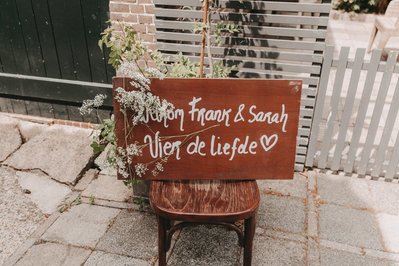 Welkom Frank & Sarah
Vier de liefde ♡